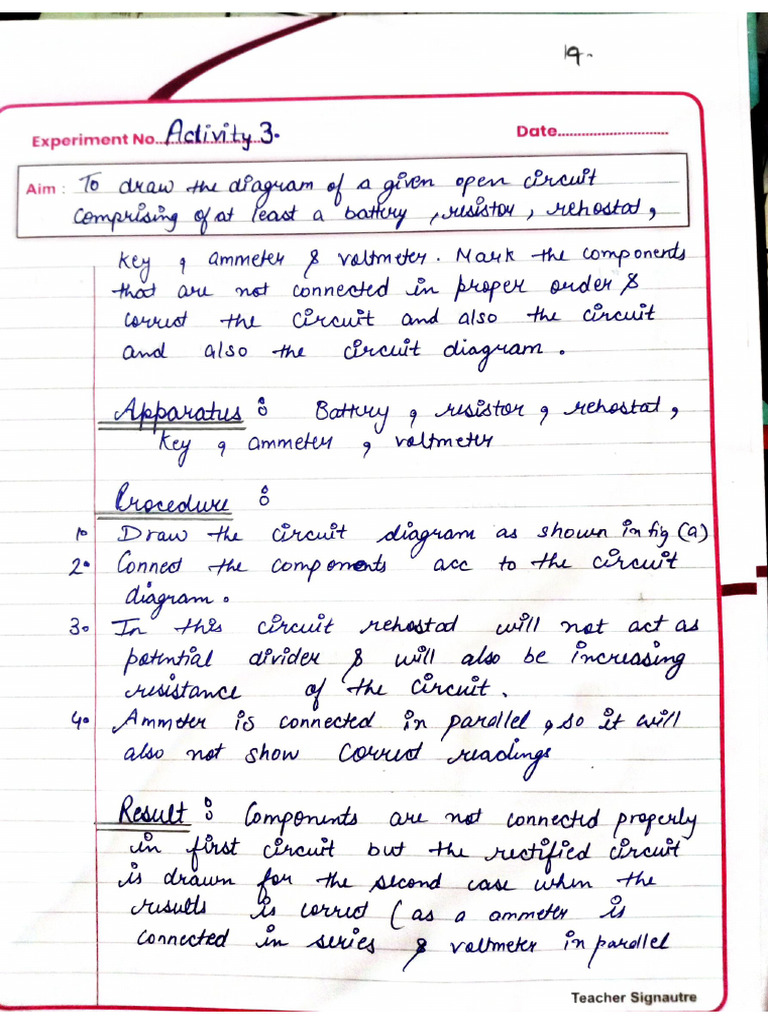 19.
Experiment No. Activity 3.
Date
Aim : To draw the diagram of a given open circuit
comprising of at least a battery , resistor , rehostat ,
key , ammeter & voltmeter . Mark the components
that are not connected in proper order &
correct the circuit and also the circuit
and also the circuit diagram .
Apparatus : Battery , resistor , rehostat ,
key , ammeter , voltmeter
Procedure :
1. Draw the circuit diagram as shown in fig (a)
2. Connect the components acc to the circuit
diagram .
3. In this circuit rehostat will not act as
potential divider & will also be increasing
resistance of the circuit .
4. Ammeter is connected in parallel , so it will
also not show correct readings
Result : Components are not connected properly
in first circuit but the rectified circuit
is drawn for the second case when the
results is correct ( as a ammeter is
connected in series & voltmeter in parallel
Teacher Signautre